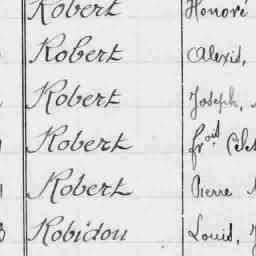 Robert Honoré
Robert Alexis,
Robert Joseph,
Robert frois
Robert Pierre
Robidou Louis,